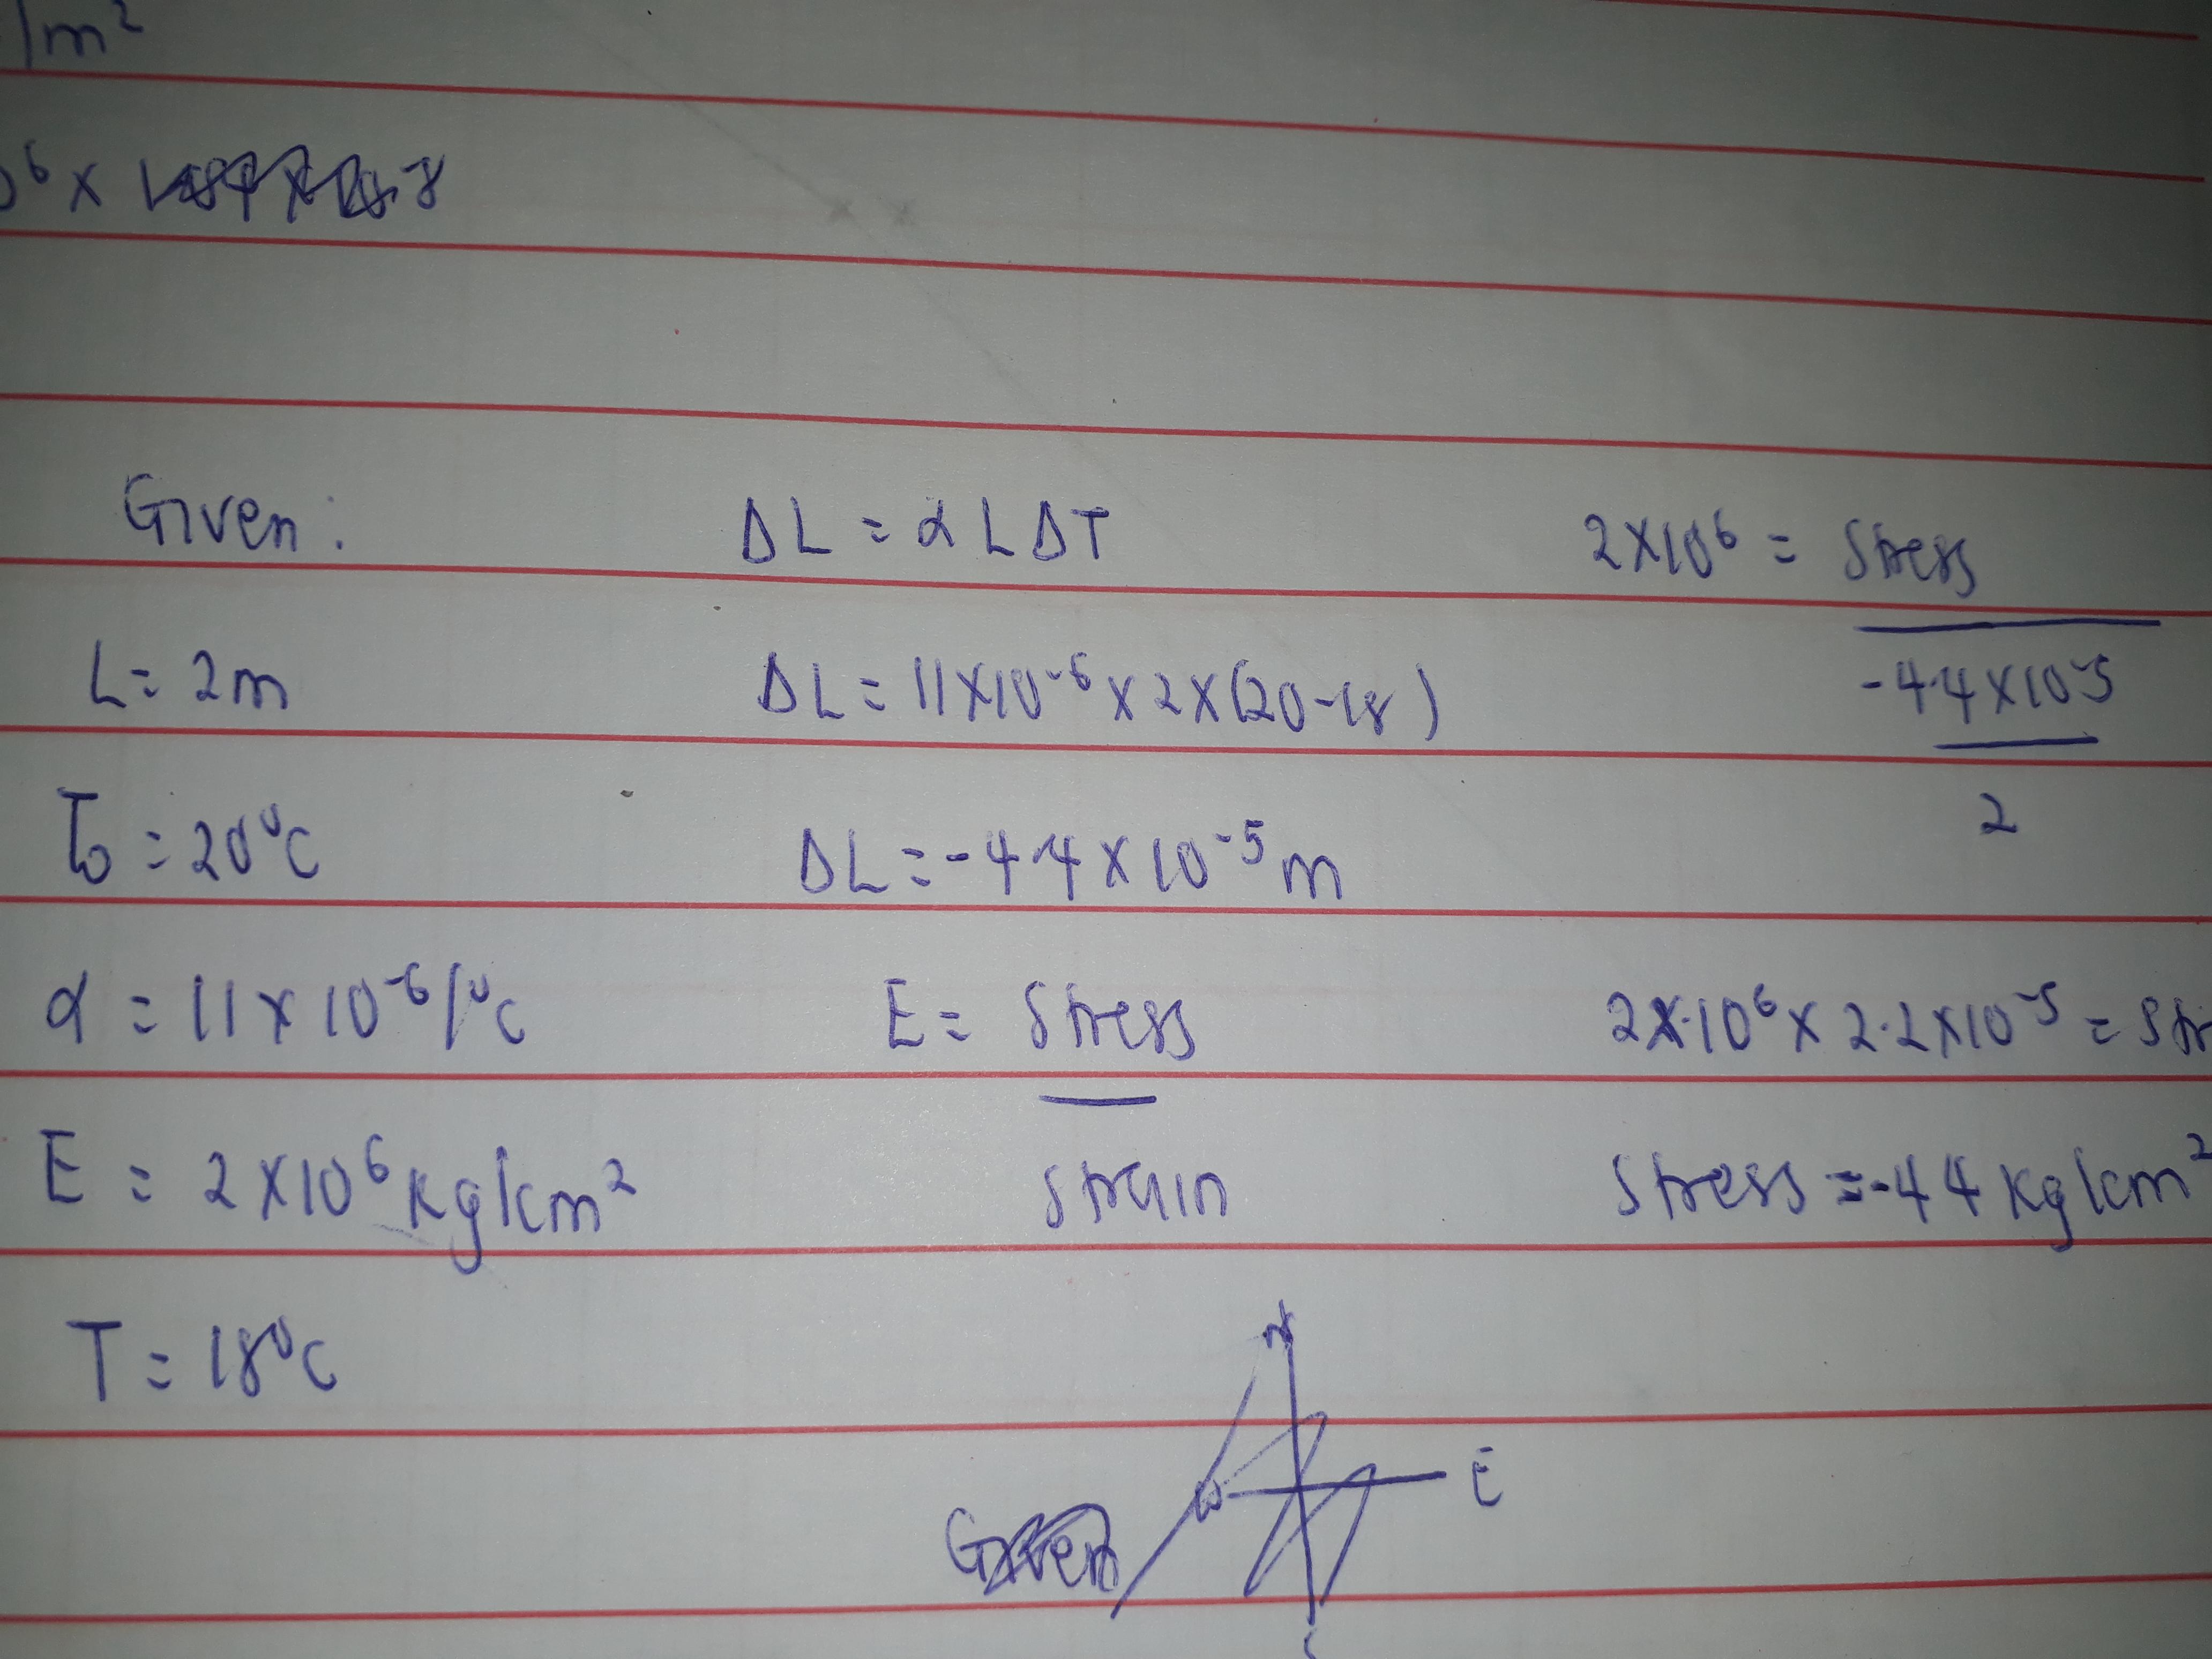 /m²
6 x
Given:
L = 2m
To = 20°C
α = 11 x 10⁻⁶/°C
E = 2 x 10⁶ kg/cm²
T = 18°C
ΔL = α L ΔT
ΔL = 11x10⁻⁶ x 2 x (20-18)
ΔL = -4.4 x 10⁻⁵ m
E = Stress
Strain
2x10⁶ = Stress
-4.4x10⁻⁵
2
2x10⁶ x 2.2x10⁻⁵ = Str
Stress = -44 kg/cm²
N
W E
Given